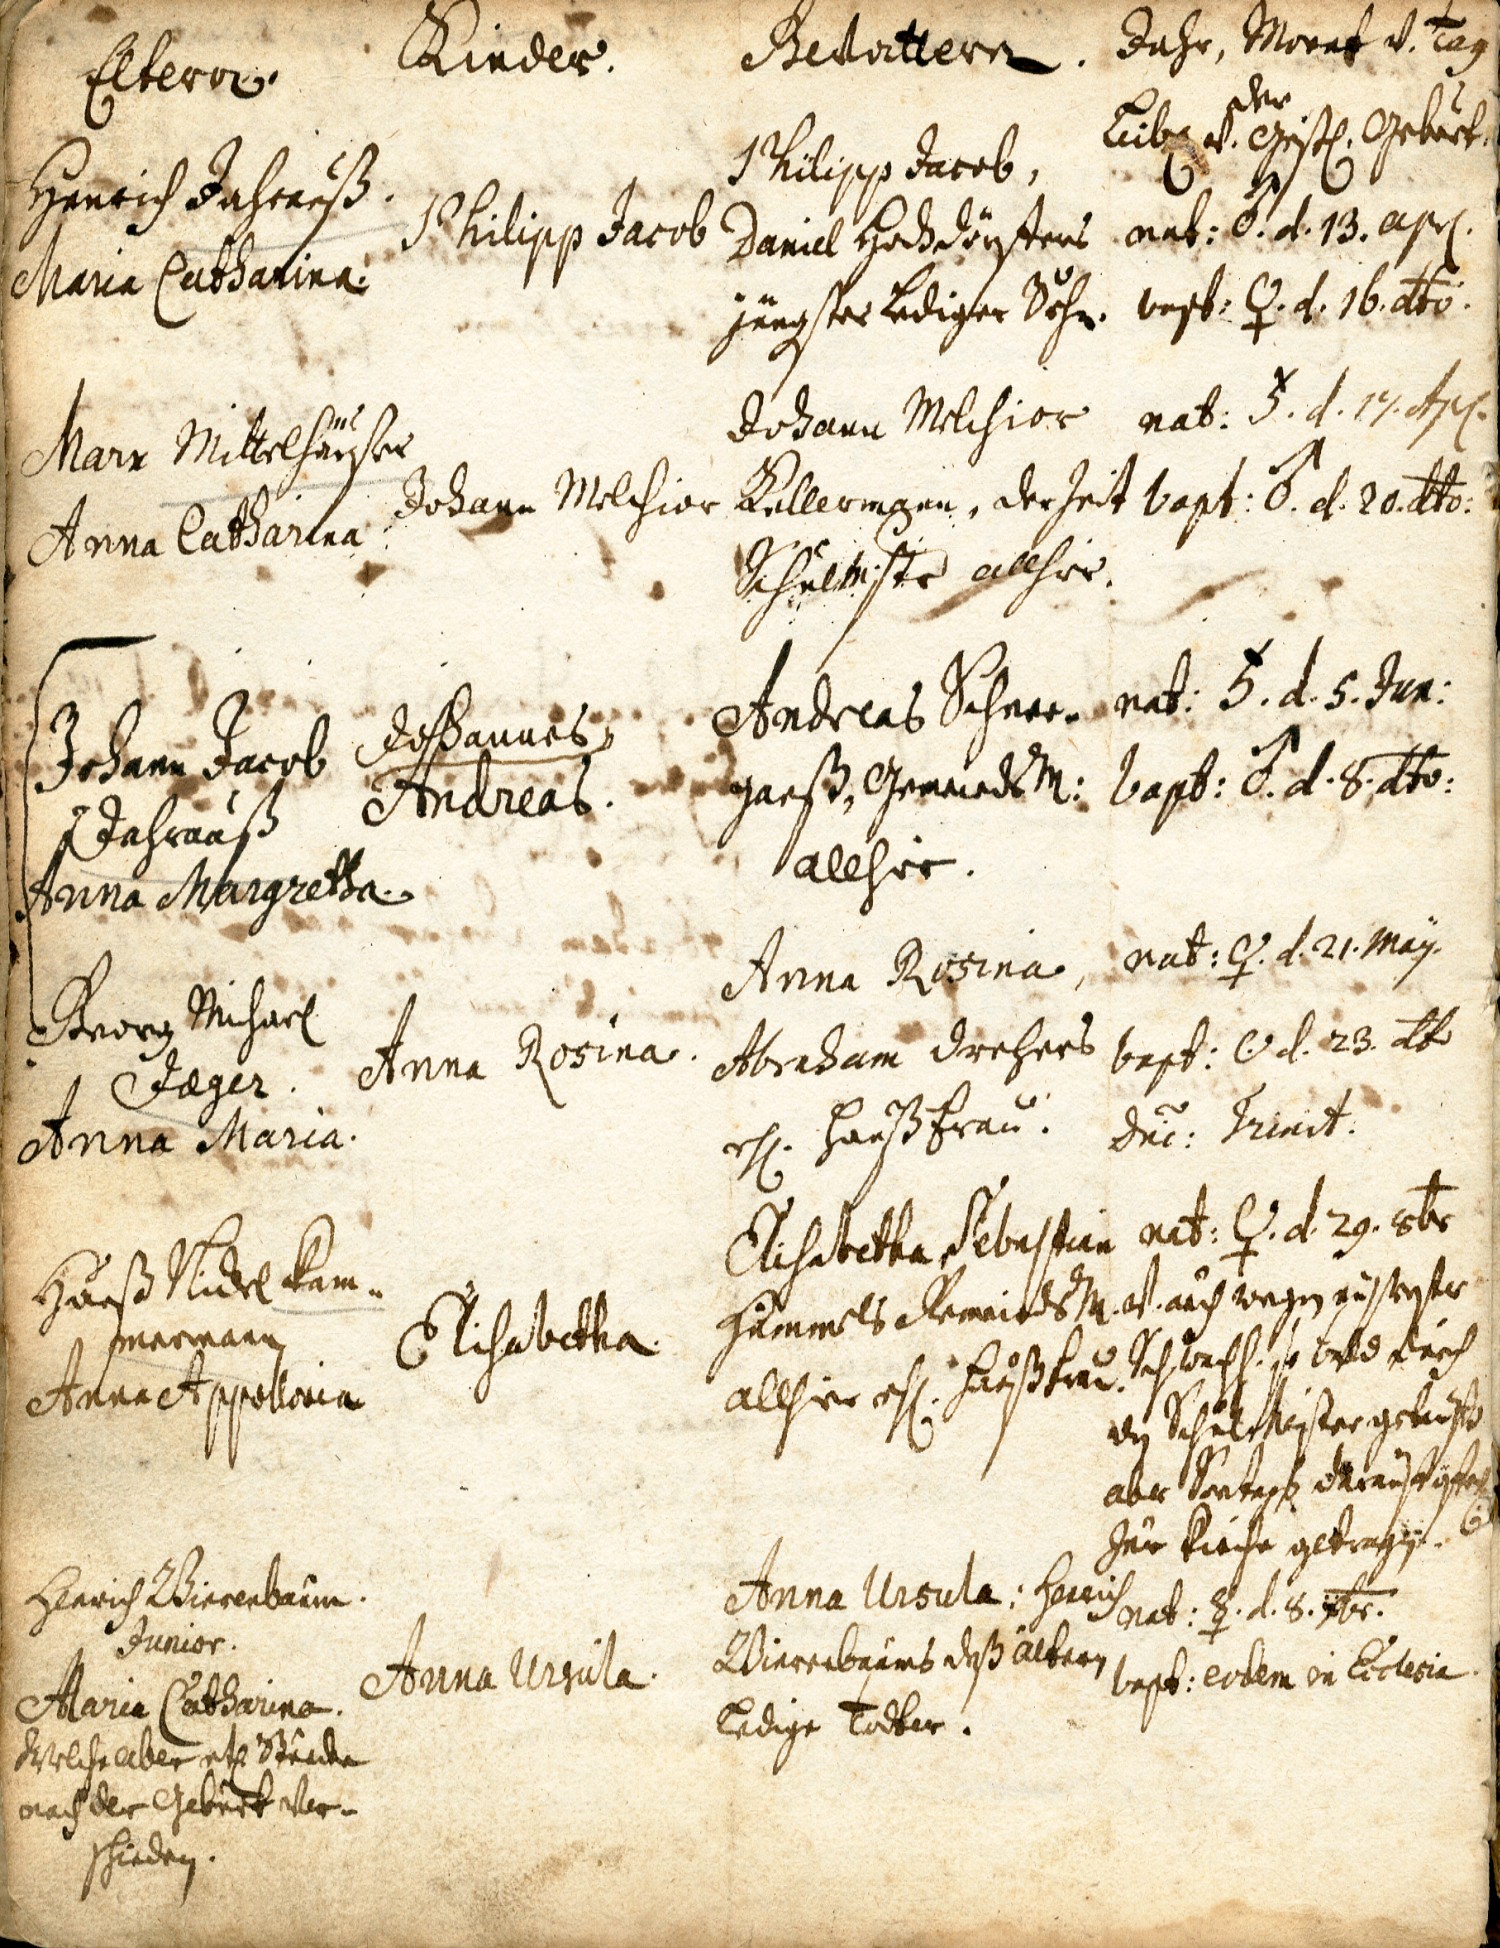 Eltern.
Kinder.
Gevattern.
Jahr, Monat v. Tag
der
Leib. v. Geistl. Geburt.
Henrich Jahrauß.
Maria Catharina.
Philipp Jacob
Philipp Jacob,
Daniel Hochdörffers
jüngster Lediger Sohn.
nat: ♂. d. 13. Apr.
bapt: ♀. d. 16. dto.
Marx Mittelhäußer
Anna Catharina
Johann Melchior
Johann Melchior
Kellermann, der Zeit
Schulmstr allhier.
nat: ♄. d. 17. Apr.
bapt: ♂. d. 20. dto:
Johann Jacob
Jahrauß
Anna Margretha.
Johannes
Andreas.
Andreas Schnee-
ganß, GemeindsM:
allhier.
nat: ♄. d. 5. Jun:
bapt: ♂. d. 8. dto:
Georg Michael
Jæger.
Anna Maria.
Anna Rosina.
Anna Rosina,
Abraham Drehers
ehl. Haußfrau.
nat: ♀. d. 21. May.
bapt: ☉ d. 23. dto
Trinit.
Hanß Nickel Kam-
mermann
Anna Appollonia
Elisabetha.
Elisabetha Sebastian
Hummels GemeindsM.
allhier ehl. Haußfrau.
nat: ♀. d. 29. 8br
v. auch wegen
Schwachh. so bald durch
den Schulmeister getaufft
aber Sontags darauf
Zur Kirche getragen.
Henrich Bierenbaum.
Junior.
Maria Catharina.
Welche aber etl. Stunden
nach der Geburt ver-
schieden.
Anna Ursula.
Anna Ursula: Henrich
Bierenbaums deß ältern
Ledige Tochter.
nat: ☿. d. 8. xbr.
bapt: eodem in Ecclesia.